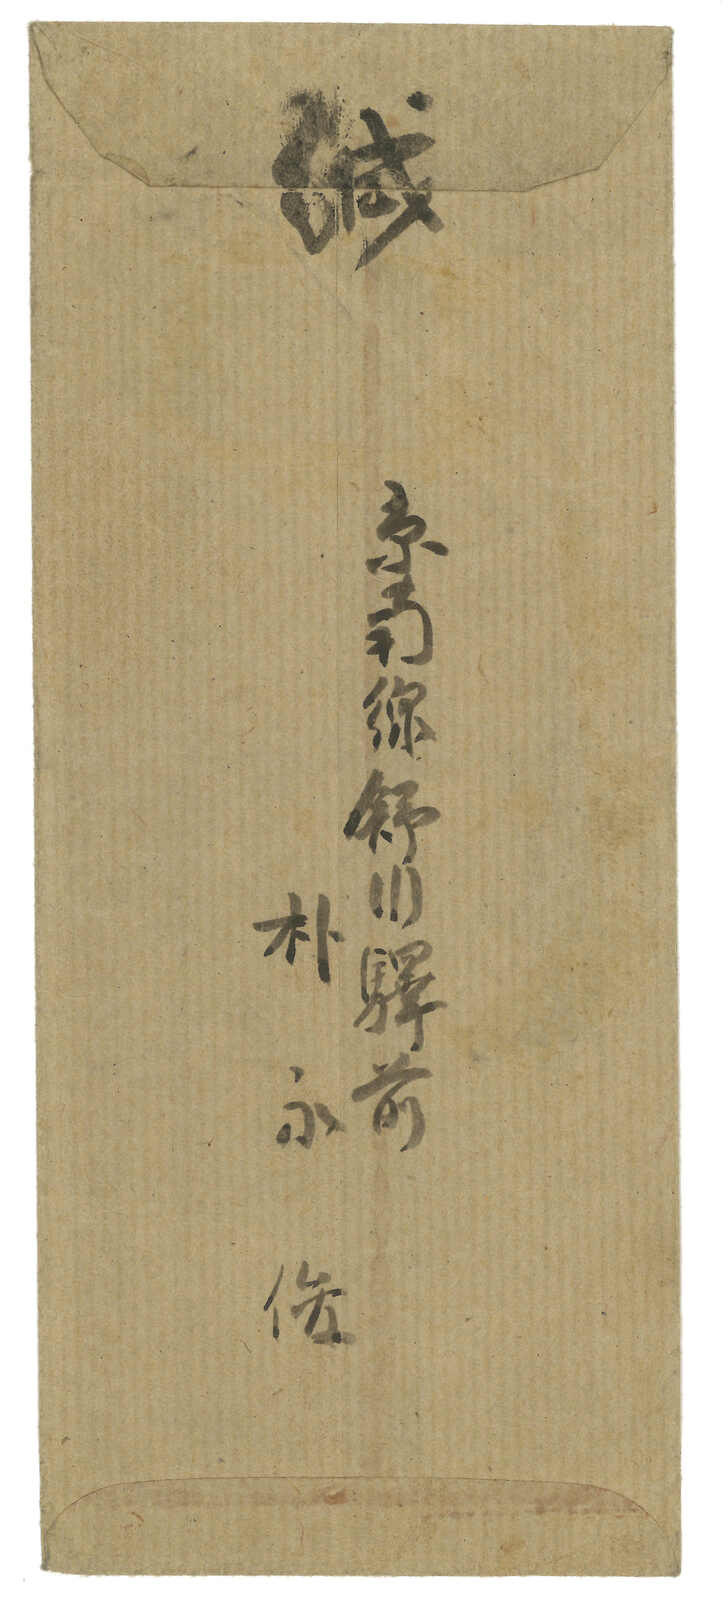 緘
京南線舒川驛前
朴永俊